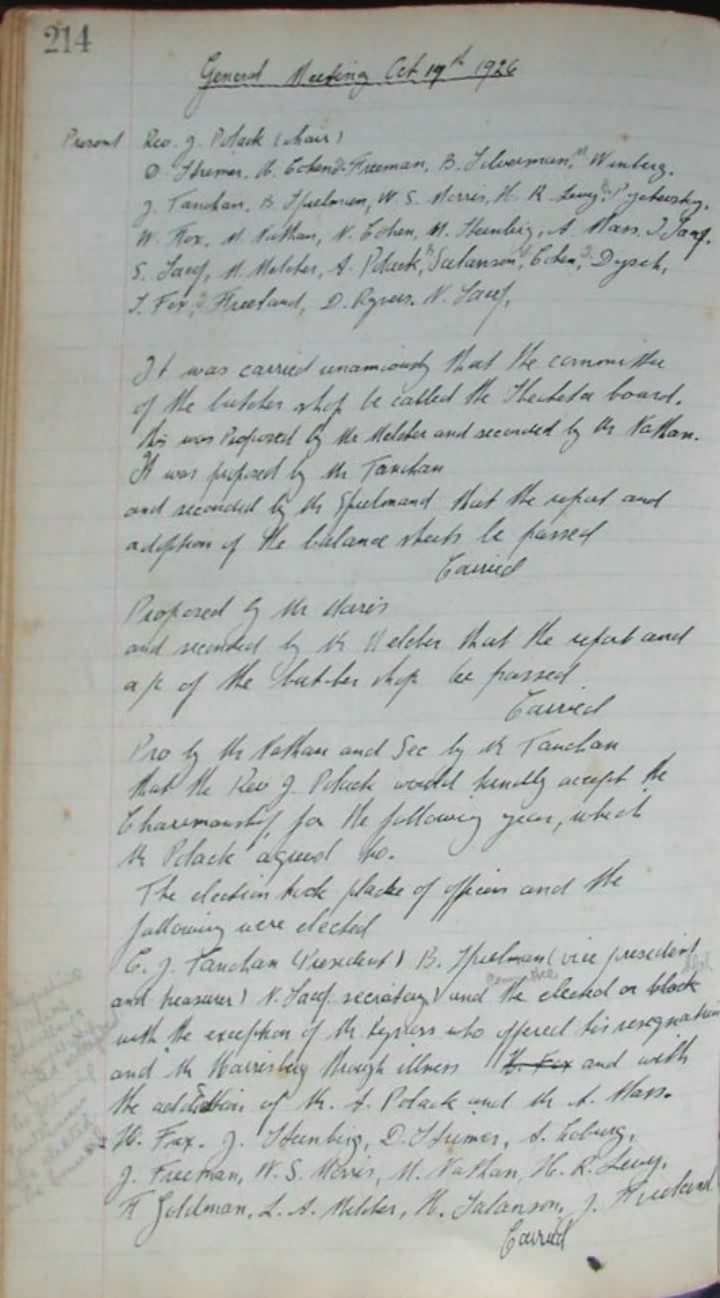 214
General Meeting Oct 19th 1926
Present Rev. J. Polack (chair)
D. Shrimer, H. Cohen, Freeman, B. Silverman, Winberg,
J. Tanchan, B. Spielman, W. S. Morris, H. R. Levy,
W. Fox, M. Nathan, N. Cohen, M. Steinbig, A. Mass, I. Sauf,
S. Sauf, M. Melcher, A. Polack, Salanson, Cohen, Dysch,
I. Fox, Freeland, D. N. Sauf,
It was carried unamiously that the committee
of the butcher shop be called the Shecheta board.
this was Proposed by Mr Melcher and seconded by Mr Nathan.
It was proposed by Mr Tanchan
and seconded by Mr Spielmand that the report and
adoption of the balance sheets be passed
Carried
Proposed by Mr Morris
and seconded by Mr Melcher that the report and
a/c of the butcher shop be passed
Carried
Pro by Mr Nathan and Sec by Mr Tanchan
that the Rev J. Polack would kindly accept the
Charemanship for the following year, which
Mr Polack agreed to.
The election took place of officers and the
following were elected
C. J. Tanchan (President) B. Spielman (vice president
and treasurer) N. Sauf secretary) and the committee elected on block
with the exception of Mr who offered his resignation
and Mr Harrisberg through illness H. Fox and with
the addition of Mr. A. Polack and Mr A. Mass.
W. Fox. J. Steinbig, D. Shrimer, A. Coburg,
J. Freeman, W. S. Morris, M. Nathan, H. R. Levy,
H Goldman, L. A. Melcher, H. Salanson, J. Freeland
Carried